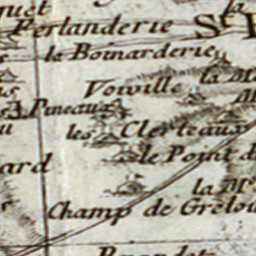 quet la
Perlanderie St
le Boinarderie
Voiville la M
Puneaux
les Clerteaux
le Point d
ard la Mn
Champ de Grelou